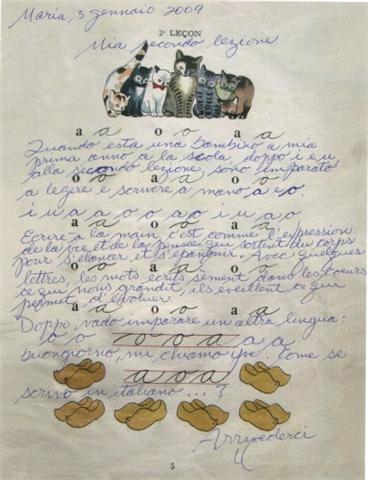 Maria, 3 gennaio 2009
2e LEÇON
Mia secondo lezione
a a o o a a
Quando esta una bambino a mia
prima anno a la scola, doppo i e u
alla secondo lezione, sono imparato
o o a a o o
a legere e scrivere a mano a e o.
i u a a o o a o i u a o
Ecrire à la main, c'est comme l'expression
de la vie et de la pensée qui sortent du corps
pour s'élancer et s'épanouir. Avec quelques
o o a a o o
lettres, les mots écrits sèment dans les coeurs
ce qui nous grandit, ils éveillent ce qui
permet d'évoluer.
a a o o a a
Doppo, vado imparare un altra lingua:
o o o o a a a a
buongiorno, mi chiamo . Come se
a o a
scrivo in italiano ... ?
Arrivederci
5